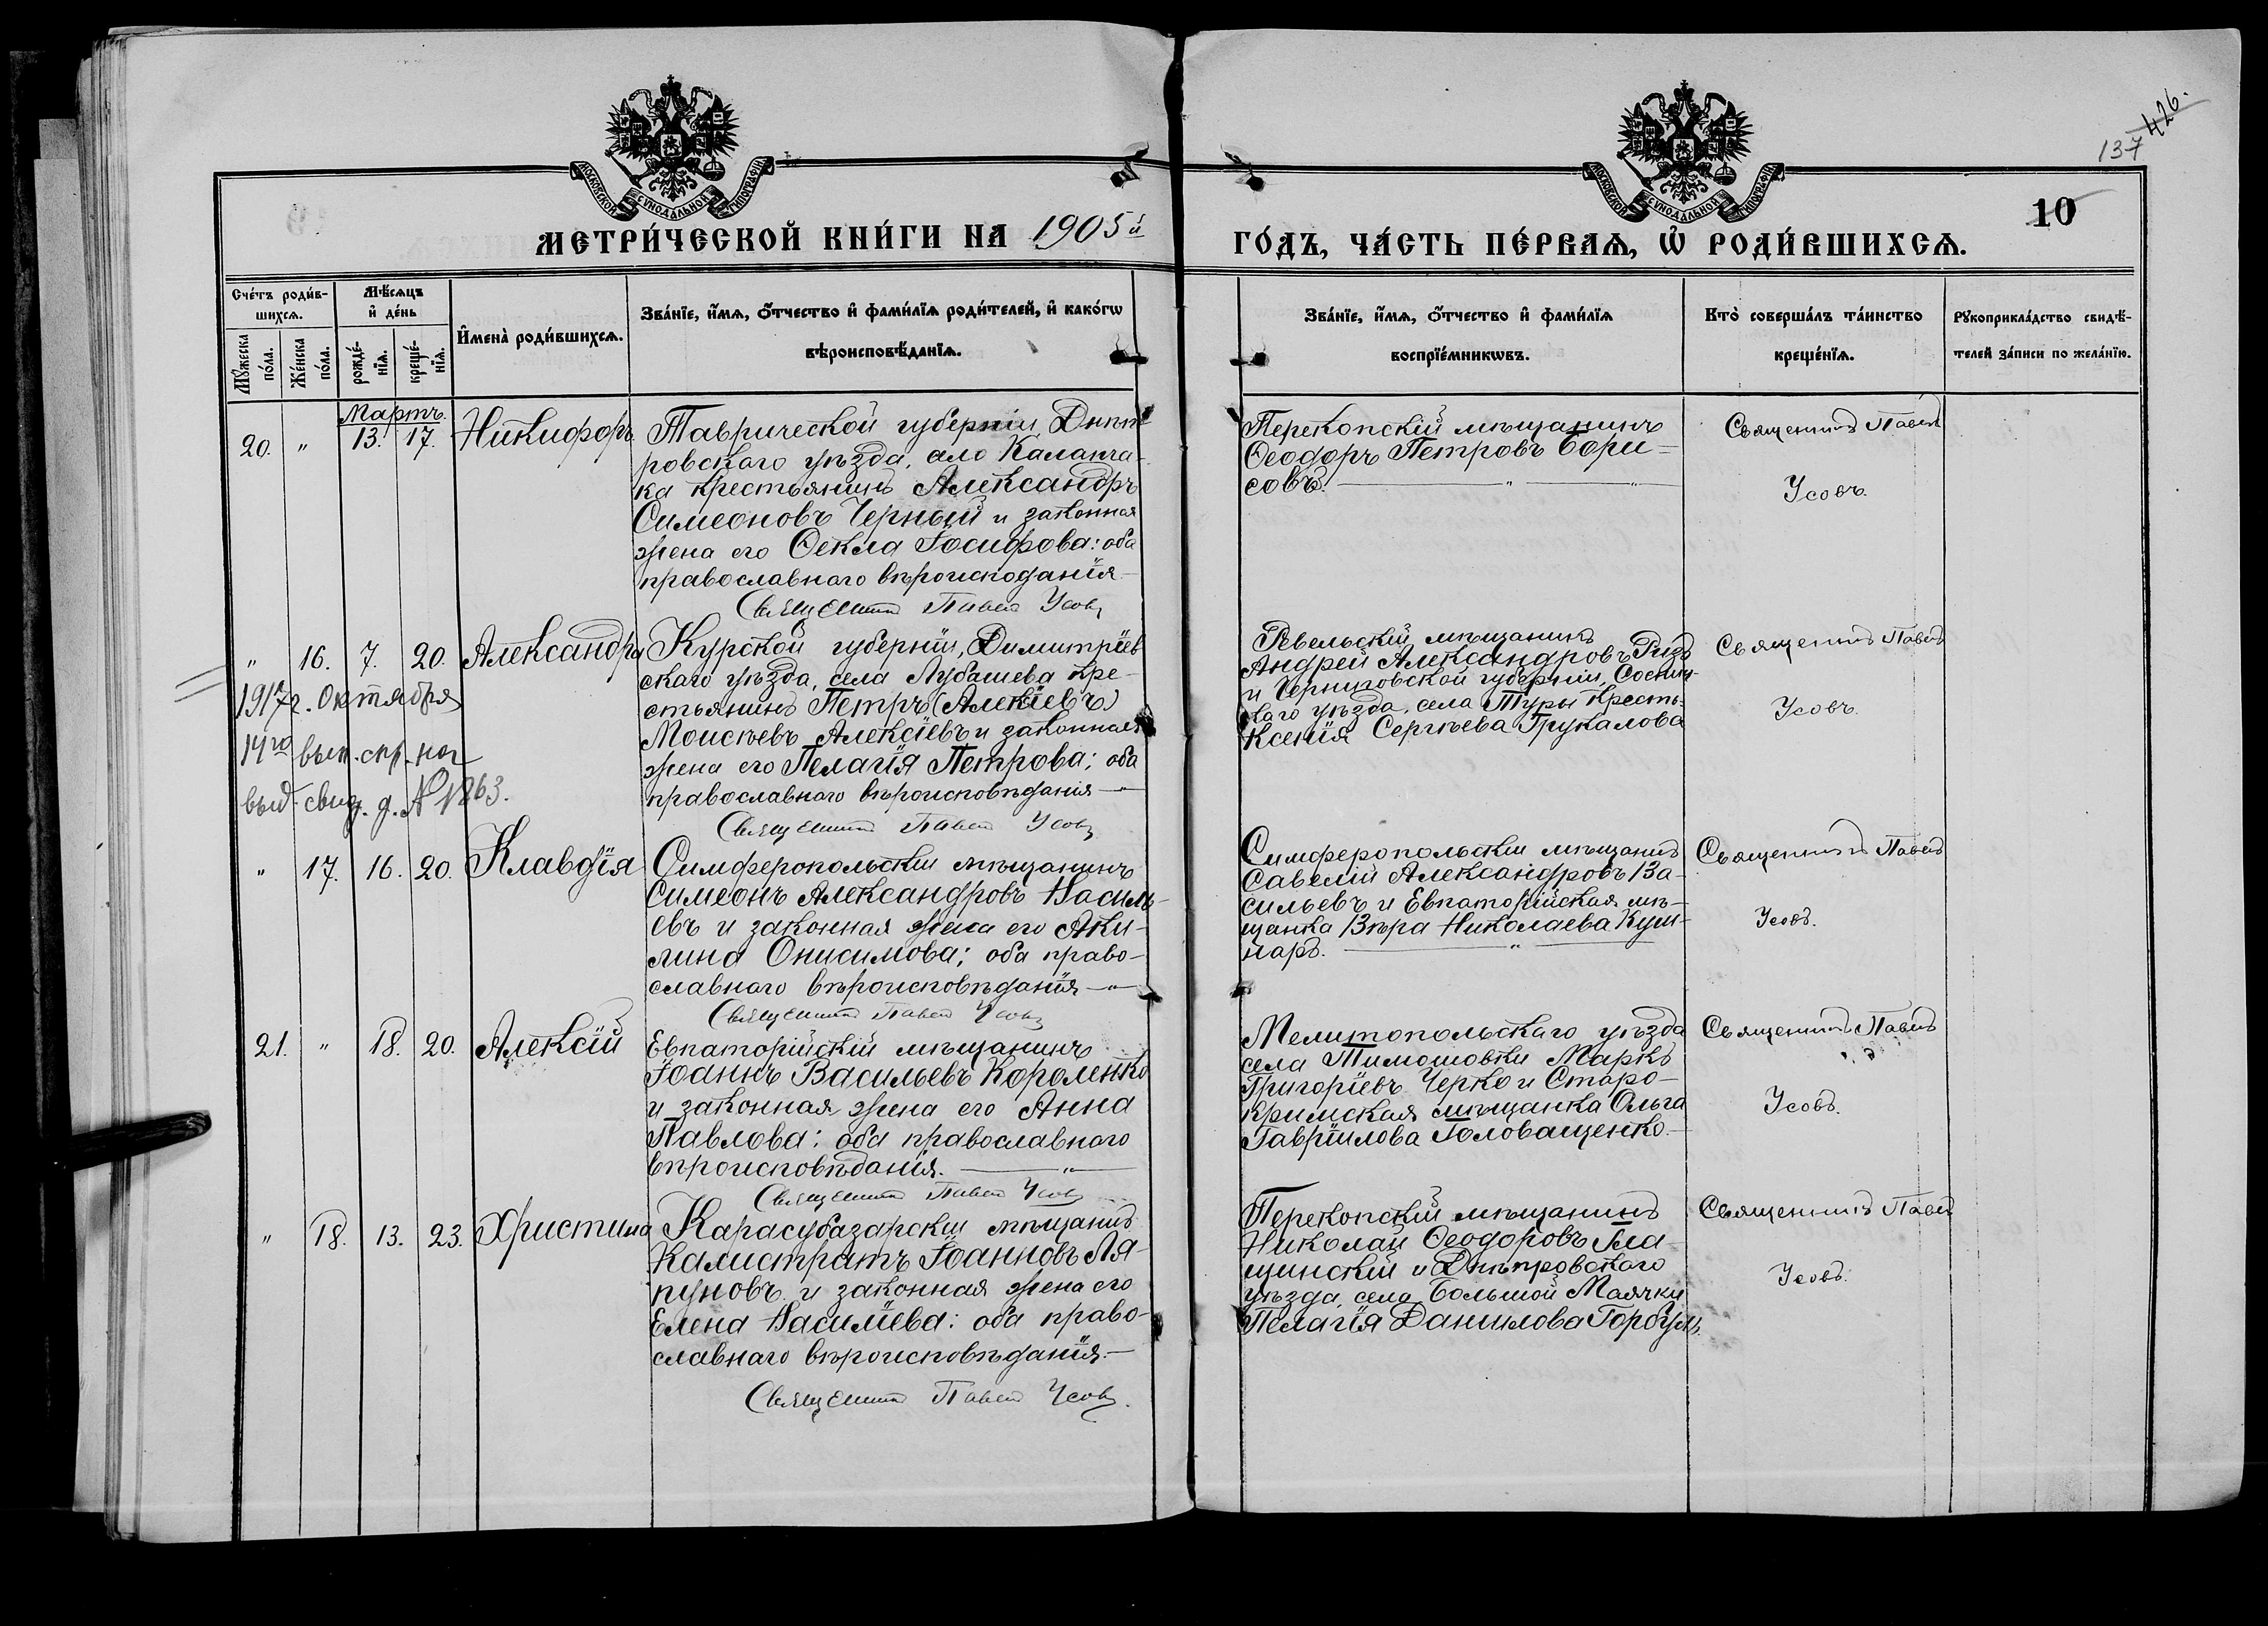 426.
137
МОСКОВСКОЙ СѴНОДАЛЬНОЙ ТИПОГРАФІИ
МОСКОВСКОЙ СѴНОДАЛЬНОЙ ТИПОГРАФІИ
10
МЕТРИ́ЧЕСКОЙ КНИ́ГИ НА 1905й
ГО́ДЪ, ЧА́СТЬ ПЕ́РВАѦ, Ѡ҆ РОДИ́ВШИХСѦ.
Сче́тъ роди́в-
шихсѧ.
Мꙋ́жеска по́ла.
Же́нска по́ла.
Мѣ́сѧцъ и҆ де́нь
рожде́-нїѧ.
креще́-нїѧ.
И҆мена̀ роди́вшихсѧ.
Зва́нїе, и҆́мѧ, ѻ҆́тчество и҆ фами́лїѧ роди́телей, и҆ како́гѡ
вѣроисповѣ́данїѧ.
Зва́нїе, и҆́мѧ, ѻ҆́тчество и҆ фами́лїѧ
воспрїе́мникѡвъ.
Кто̀ соверша́лъ та́инство
креще́нїѧ.
Рꙋкоприкла́дство свидѣ́-
телей за́писи по жела́нїю.
Мартъ.
20. " 13. 17. Никифоръ
Таврической губерніи Днѣп-
ровскаго уѣзда, село Каланча-
ка крестьянинъ Александръ
Симеоновъ Черный и законная
жена его Ѳекла Іосифова: оба
православнаго вѣроисподанія
Священникъ Павелъ Усовъ
Перекопскій мѣщанинъ
Ѳеодоръ Петровъ Бори-
совъ.
Священникъ Павелъ
Усовъ.
" 16. 7. 20. Александра
1917 г. Октября
14го вып. спр. на
выд. свид. д. № 1863.
Курской губерніи, Димитріев
скаго уѣзда, села Лубашева кре-
стьянинъ Петръ (Алексіевъ)
Моисѣевъ Алексіевъ и законная
жена его Пелагія Петрова; оба
православнаго вѣроисповѣданія
Священникъ Павелъ Усовъ
Ревельскій мѣщанинъ
Андрей Александровъ Ридъ
и Черниговской губерніи, Сосниц-
каго уѣзда, села Туры кресть.
Ксенія Сергѣева Грукалова
Священникъ Павелъ
Усовъ.
" 17. 16. 20. Клавдія
Симферопольскій мѣщанинъ
Симеонъ Александровъ Василь-
евъ и законная жена его Аки-
лина Онисимова; оба право-
славнаго вѣроисповѣданія
Священникъ Павелъ Усовъ
Симферопольскій мѣщанинъ
Савелій Александровъ Ва-
сильевъ и Евпаторійская мѣ-
щанка Вѣра Николаева Куш-
наръ.
Священникъ Павелъ
Усовъ.
21. " 18. 20. Алексій
Евпаторійскій мѣщанинъ
Іоаннъ Васильевъ Короленко
и законная жена его Анна
Павлова: оба православнаго
вѣроисповѣданія.
Священникъ Павелъ Усовъ
Мелитопольскаго уѣзда
села Тимошовки Маркъ
Григоріевъ Черко и Старо-
кримская мѣщанка Ольга
Гавріилова Головащенко.
Священникъ Павелъ
Усовъ.
" 18. 13. 23. Христина
Карасубазарскій мѣщанинъ
Калистратъ Іоанновъ Ля-
пуновъ и законная жена его
Елена Василіева: оба право-
славнаго вѣроисповѣданія.
Священникъ Павелъ Усовъ.
Перекопскій мѣщанинъ
Николай Ѳеодоровъ
и Днѣпровскаго
уѣзда, села Большой Маячки
Пелагія Данилова
Священникъ Павелъ
Усовъ.